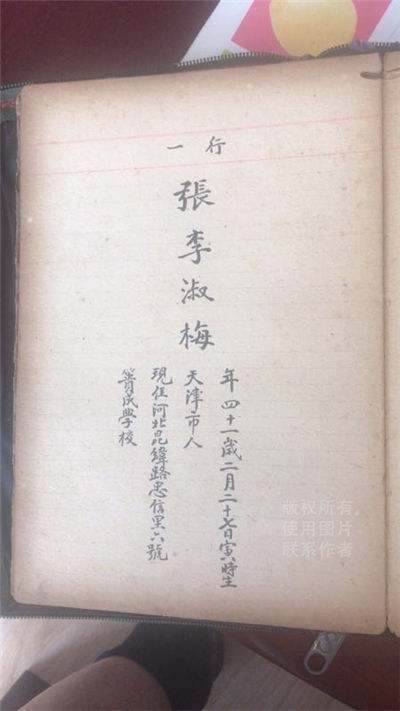 行一
張李淑梅
年四十一歲二月二十七日寅時生
天津市人
現住河北昆緯路忠信里六號
成學校
版权所有，
使用图片
联系作者